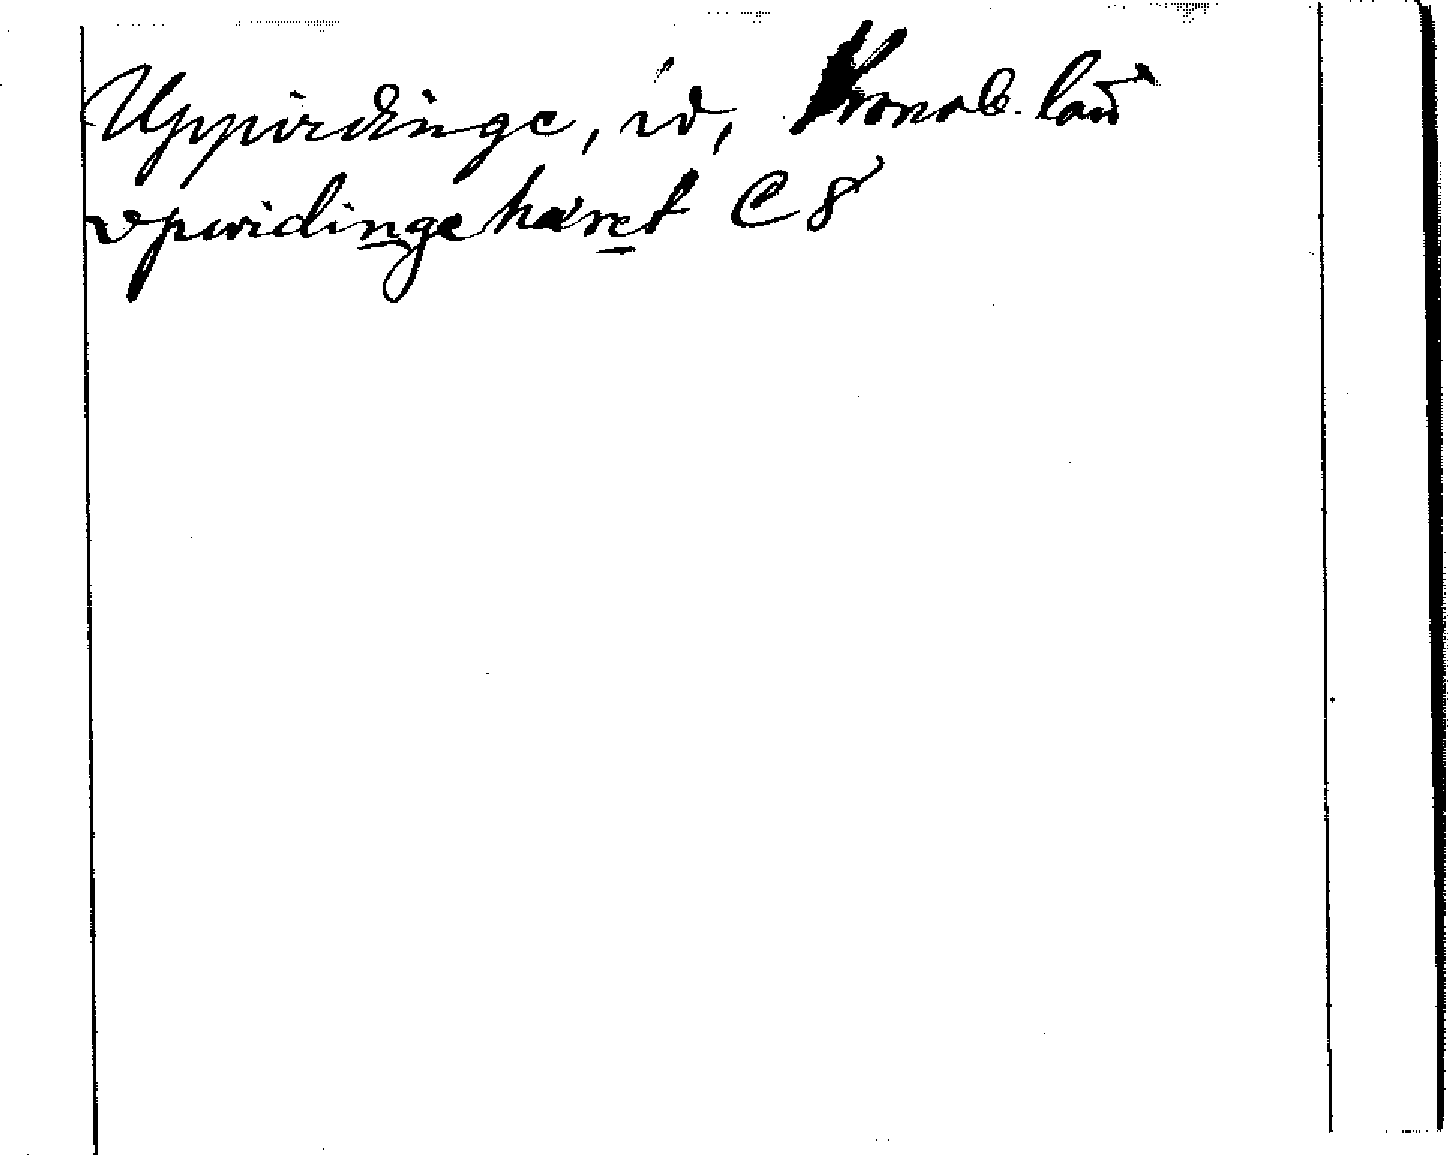 Uppvidinge, hd, Kronob. län
vpwidinge häret C 8